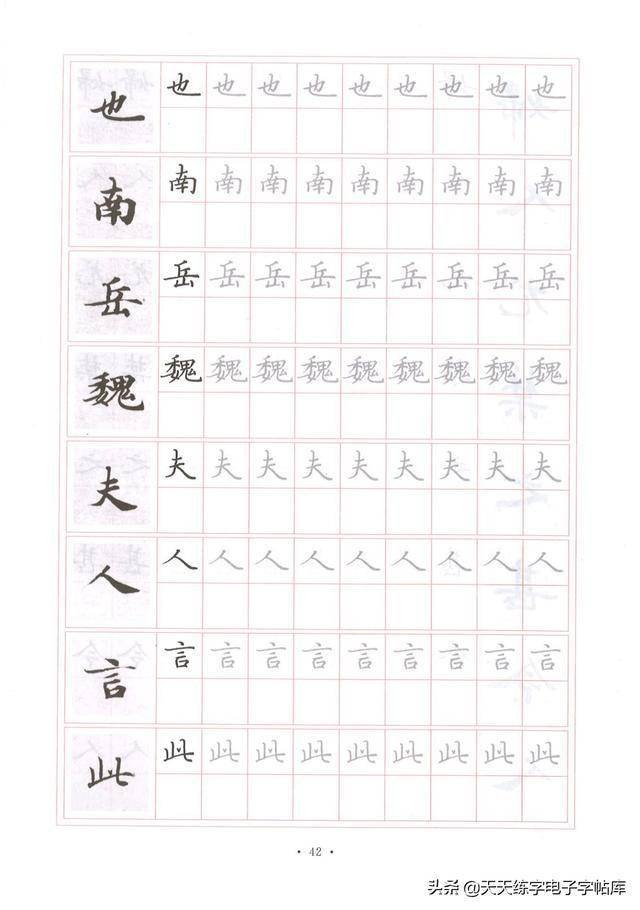 也 也 也 也 也 也 也 也 也 也
南 南 南 南 南 南 南 南 南 南
岳 岳 岳 岳 岳 岳 岳 岳 岳 岳
魏 魏 魏 魏 魏 魏 魏 魏 魏 魏
夫 夫 夫 夫 夫 夫 夫 夫 夫 夫
人 人 人 人 人 人 人 人 人 人
言 言 言 言 言 言 言 言 言 言
此 此 此 此 此 此 此 此 此 此
· 42 ·
头条 @天天练字电子字帖库